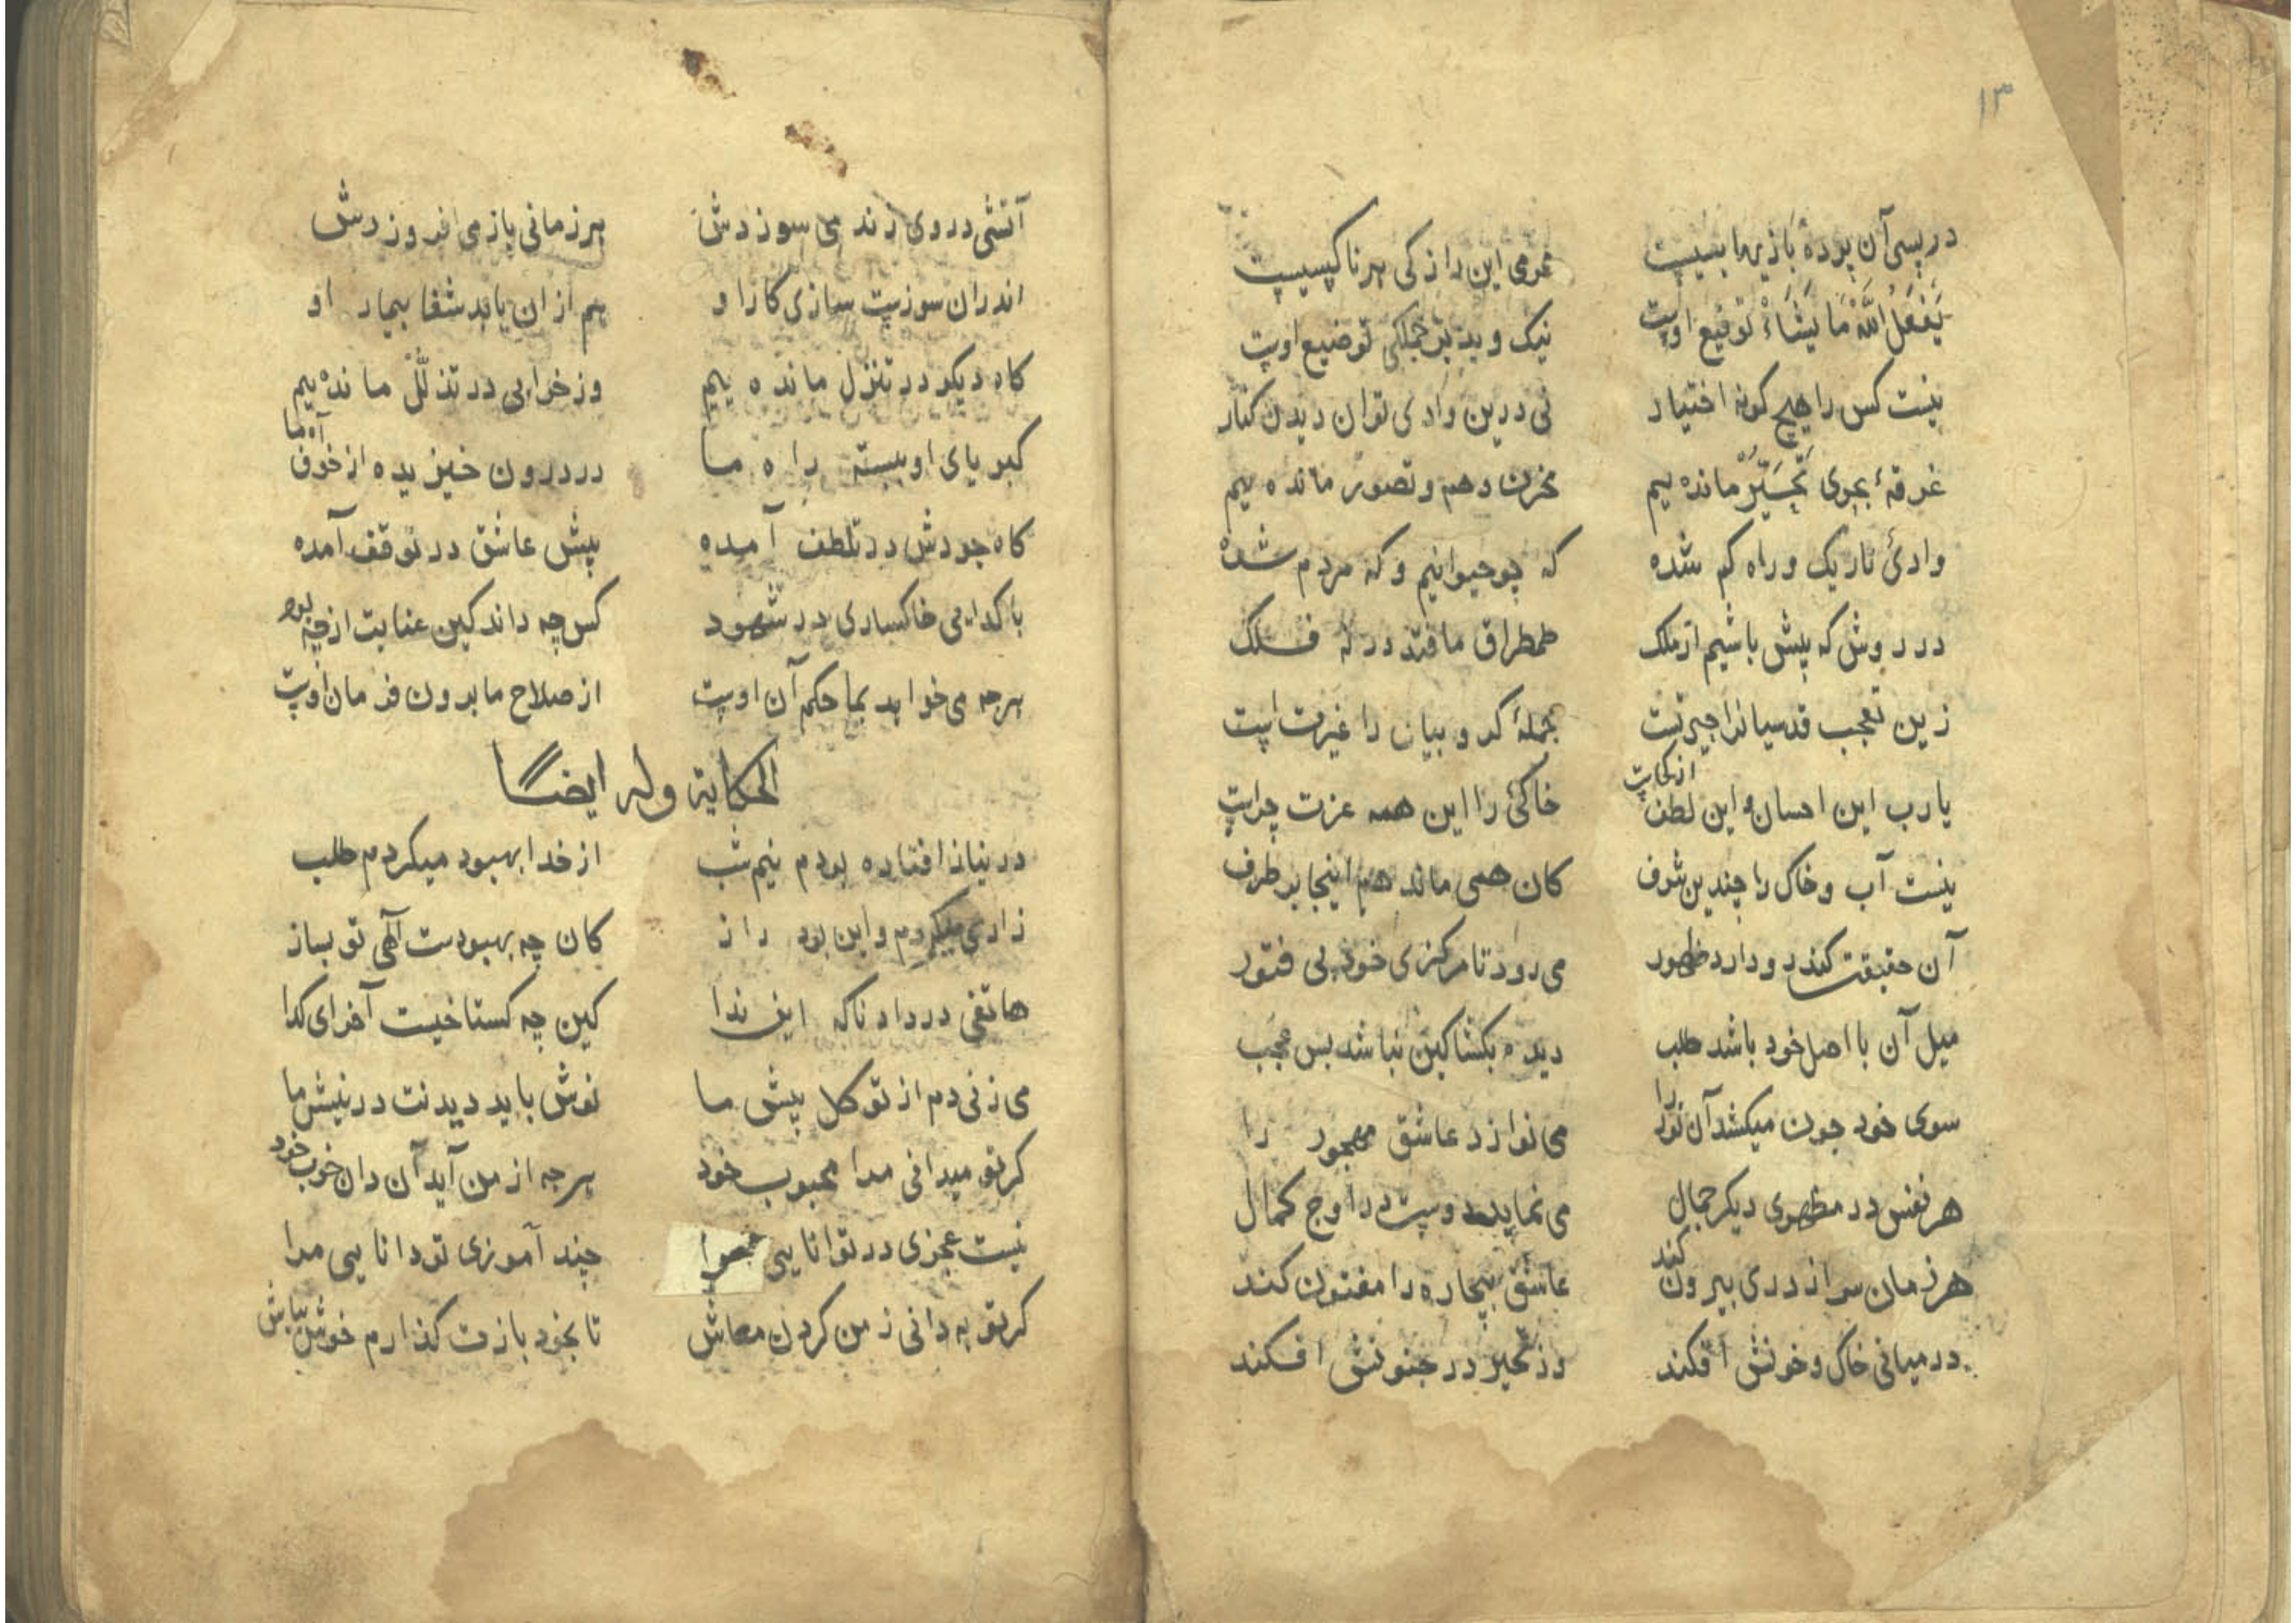 ۱۳
در پس آن پرده بازیها بسیست محرمی این راز کی هر ناکسیست
یَفعَلُ اللّٰهُ مَا یَشَاءُ توقیع اوست نیک و بد بر جملکی توضیع اوست
نیست کس را هیچ کونه اختیار نی درین وادی توان دیدن کنار
غرقهٔ بحری تحیّر مانده ییم مخزن وهم و تصور مانده ییم
وادئ تاریک و راه کم شده که چو حیوانیم و که مردم شده
در روش که پیش باشیم از ملک طمطراق ما فتد در نه فلک
زین تعجب قدسیانرا حیرتست جملهٔ کروبیان را غیرت است
یارب این احسان و این لطف از کجاست خاکئ را این همه عزت چراست
نیست آب و خاک را چندین شرف کان همی ماند هم اینجا بر طرف
آن حقیقت کندرو دارد ظهور می رود تا مرکزی خود بی فتور
میل آن با اصل خود باشد طلب دیده بکشا کین نباشد بس عجب
سوی خود چون میکشد آن نور را می نوازد عاشق مهجور را
هر نفس در مظهری دیکر جمال می نماید دوست در اوج کمال
هر زمان سر از دری بیرون کند عاشق بیچاره را مفتون کند
در میانی خاک و خونش افکند وز تحیر در جنونش افکند
آتشی در وی زند می سوزدش هر زمانی باز می افروزدش
اندران سوزست سازی کار او هم از ان یابد شفا بیمار او
کاه دیکر در تنزل مانده ییم وز خرابی در تذلّل مانده ییم
کبریای او بسته راه ما در درون خیزیده از خوف آه ما
کاه جودش در تلطف آمده پیش عاشق در توقف آمده
با کدامی خاکساری در شهود کس چه داند کین عنایت از چه بود
هرچه می خواهد بما حکم آن اوست از صلاح ما برون فرمان اوست
الحکایة وله ایضا
در نیاز افتاده بودم نیم شب از خدا بهبود میکردم طلب
زاری میکردم و این بود راز کان چه بهبودست الهی تو بساز
هاتفی در داد ناکه این ندا کین چه کستاخیست آخر ای کدا
می زنی دم از توکل پیش ما نوش باید دیدنت در نیش ما
کر تو میدانی مرا محبوب خود هرچه از من آید آن دان خوب خود
نیست عجزی در توانایی مرا چند آموزی تو دانایی مرا
کر تو به دانی ز من کردن معاش تا بخود بازت کذارم خوش بباش